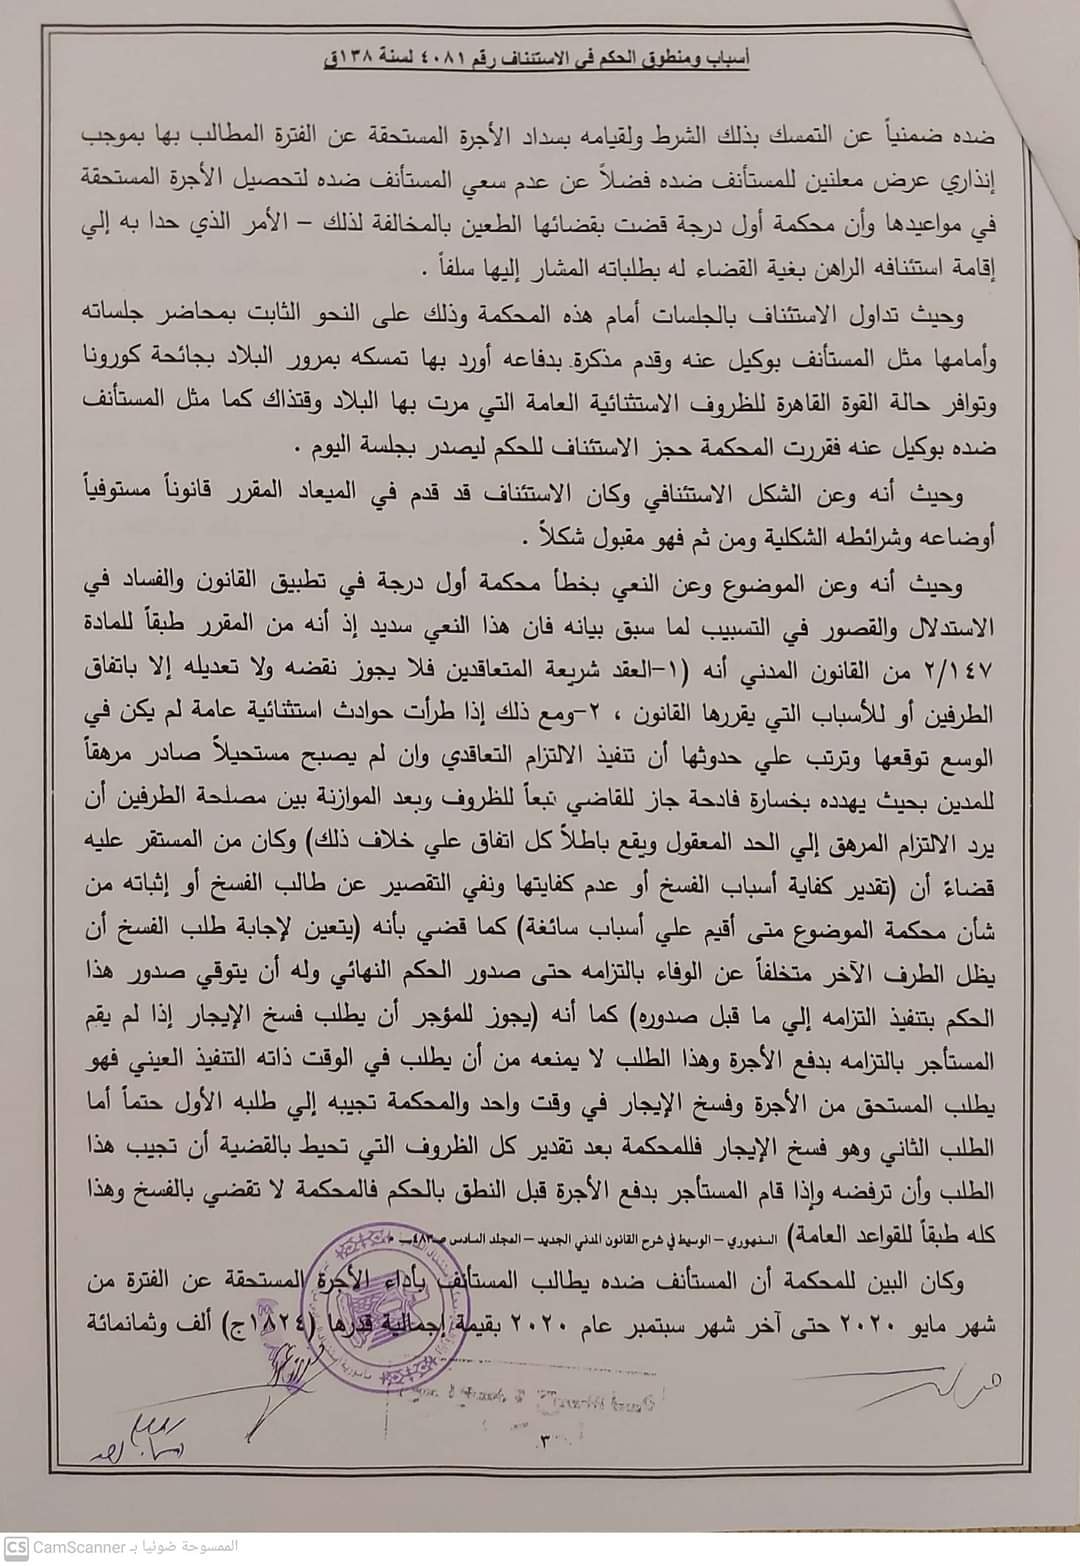 أسباب ومنطوق الحكم في الاستئناف رقم ٤٠٨١ لسنة ١٣٨ق
ضده ضمنياً عن التمسك بذلك الشرط ولقيامه بسداد الأجرة المستحقة عن الفترة المطالب بها بموجب
إنذاري عرض معلنين للمستأنف ضده فضلاً عن عدم سعي المستأنف ضده لتحصيل الأجرة المستحقة
في مواعيدها وأن محكمة أول درجة قضت بقضائها الطعين بالمخالفة لذلك – الأمر الذي حدا به إلي
إقامة استئنافه الراهن بغية القضاء له بطلباته المشار إليها سلفاً .
وحيث تداول الاستئناف بالجلسات أمام هذه المحكمة وذلك على النحو الثابت بمحاضر جلساته
وأمامها مثل المستأنف بوكيل عنه وقدم مذكرة بدفاعه أورد بها تمسكه بمرور البلاد بجائحة كورونا
وتوافر حالة القوة القاهرة للظروف الاستثنائية العامة التي مرت بها البلاد وقتذاك كما مثل المستأنف
ضده بوكيل عنه فقررت المحكمة حجز الاستئناف للحكم ليصدر بجلسة اليوم .
وحيث أنه وعن الشكل الاستئنافي وكان الاستئناف قد قدم في الميعاد المقرر قانوناً مستوفياً
أوضاعه وشرائطه الشكلية ومن ثم فهو مقبول شكلاً .
وحيث أنه وعن الموضوع وعن النعي بخطأ محكمة أول درجة في تطبيق القانون والفساد في
الاستدلال والقصور في التسبيب لما سبق بيانه فان هذا النعي سديد إذ أنه من المقرر طبقاً للمادة
٢/١٤٧ من القانون المدني أنه (١-العقد شريعة المتعاقدين فلا يجوز نقضه ولا تعديله إلا باتفاق
الطرفين أو للأسباب التي يقررها القانون ، ٢-ومع ذلك إذا طرأت حوادث استثنائية عامة لم يكن في
الوسع توقعها وترتب علي حدوثها أن تنفيذ الالتزام التعاقدي وان لم يصبح مستحيلاً صادر مرهقاً
للمدين بحيث يهدده بخسارة فادحة جاز للقاضي تبعاً للظروف وبعد الموازنة بين مصلحة الطرفين أن
يرد الالتزام المرهق إلي الحد المعقول ويقع باطلاً كل اتفاق علي خلاف ذلك) وكان من المستقر عليه
قضاءً أن (تقدير كفاية أسباب الفسخ أو عدم كفايتها ونفي التقصير عن طالب الفسخ أو إثباته من
شأن محكمة الموضوع متى أقيم علي أسباب سائغة) كما قضي بأنه (يتعين لإجابة طلب الفسخ أن
يظل الطرف الآخر متخلفاً عن الوفاء بالتزامه حتى صدور الحكم النهائي وله أن يتوقي صدور هذا
الحكم بتنفيذ التزامه إلي ما قبل صدوره) كما أنه (يجوز للمؤجر أن يطلب فسخ الإيجار إذا لم يقم
المستأجر بالتزامه بدفع الأجرة وهذا الطلب لا يمنعه من أن يطلب في الوقت ذاته التنفيذ العيني فهو
يطلب المستحق من الأجرة وفسخ الإيجار في وقت واحد والمحكمة تجيبه إلي طلبه الأول حتماً أما
الطلب الثاني وهو فسخ الإيجار فللمحكمة بعد تقدير كل الظروف التي تحيط بالقضية أن تجيب هذا
الطلب وأن ترفضه وإذا قام المستأجر بدفع الأجرة قبل النطق بالحكم فالمحكمة لا تقضي بالفسخ وهذا
كله طبقاً للقواعد العامة) السنهوري – الوسيط في شرح القانون المدني الجديد – المجلد السادس صـ٤٨٣ـ .
وكان البين للمحكمة أن المستأنف ضده يطالب المستأنف بأداء الأجرة المستحقة عن الفترة من
شهر مايو ٢٠٢٠ حتى آخر شهر سبتمبر عام ٢٠٢٠ بقيمة إجمالية قدرها (١٨٢٤ج) ألف وثمانمائة
٣
CS CamScanner الممسوحة ضوئيا بـ